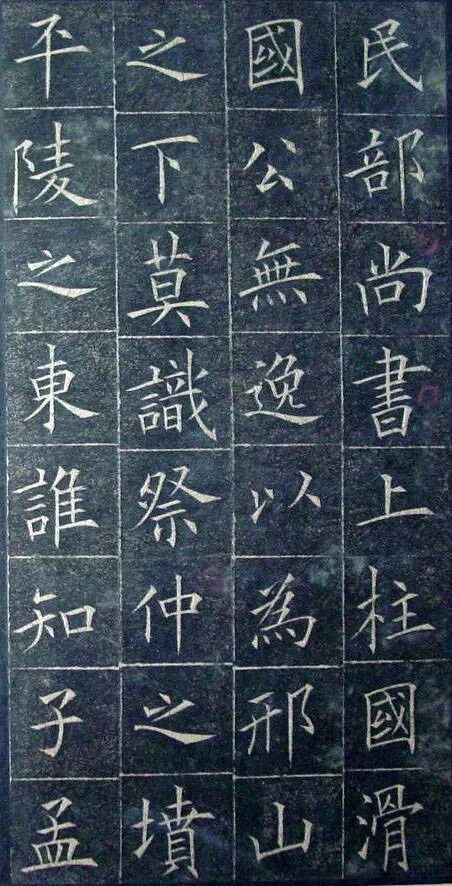 民部尚書上柱國滑
國公無逸以為邢山
之下莫識祭仲之墳
平陵之東誰知子孟